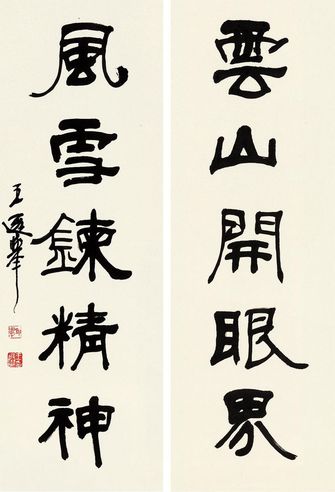 雲山開眼界
風雪鍊精神
王遐舉